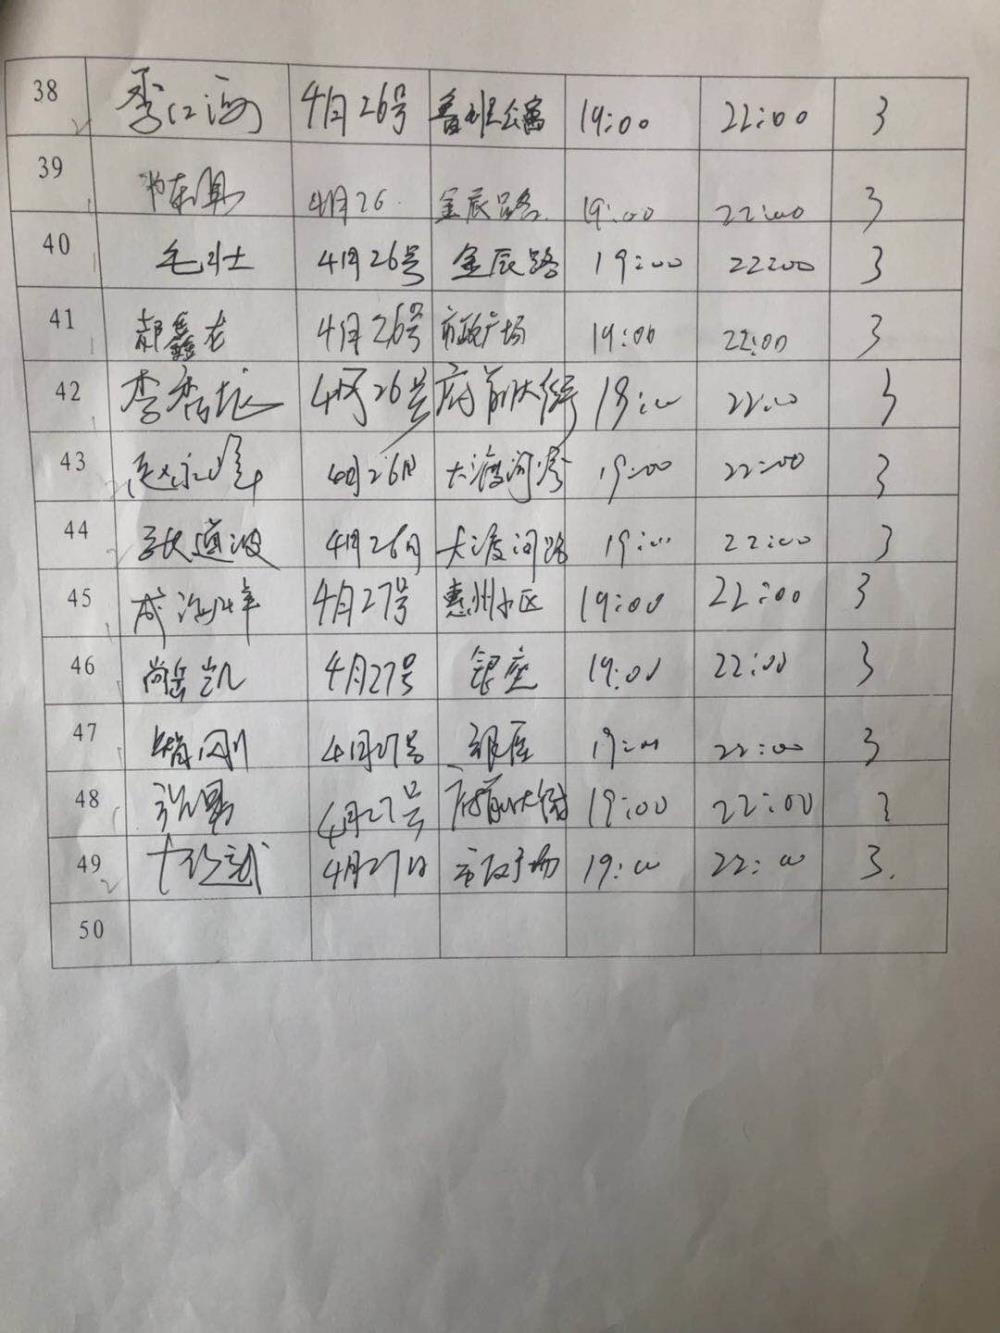 38 李江海 4月26号 鲁班公寓 19:00 22:00 3
39 4月26. 金辰路. 19:00 22:00 3
40 毛斗士 4月26号 金辰路 19:00 22:00 3
41 郝鑫龙 4月26号 市政广场 19:00 22:00 3
42 李秀龙 4月26号 府前大街 19:00 22:00 3
43 赵永峰 4月26日 大渡河路 19:00 22:00 3
44 张道波 4月26日 大渡河路 19:00 22:00 3
45 4月27号 惠州小区 19:00 22:00 3
46 尚岳凯 4月27号 银座 19:00 22:00 3
47 4月27号 银座 19:00 22:00 3
48 4月27号 府前大街 19:00 22:00 3
49 4月27日 市政广场 19:00 22:00 3.
50